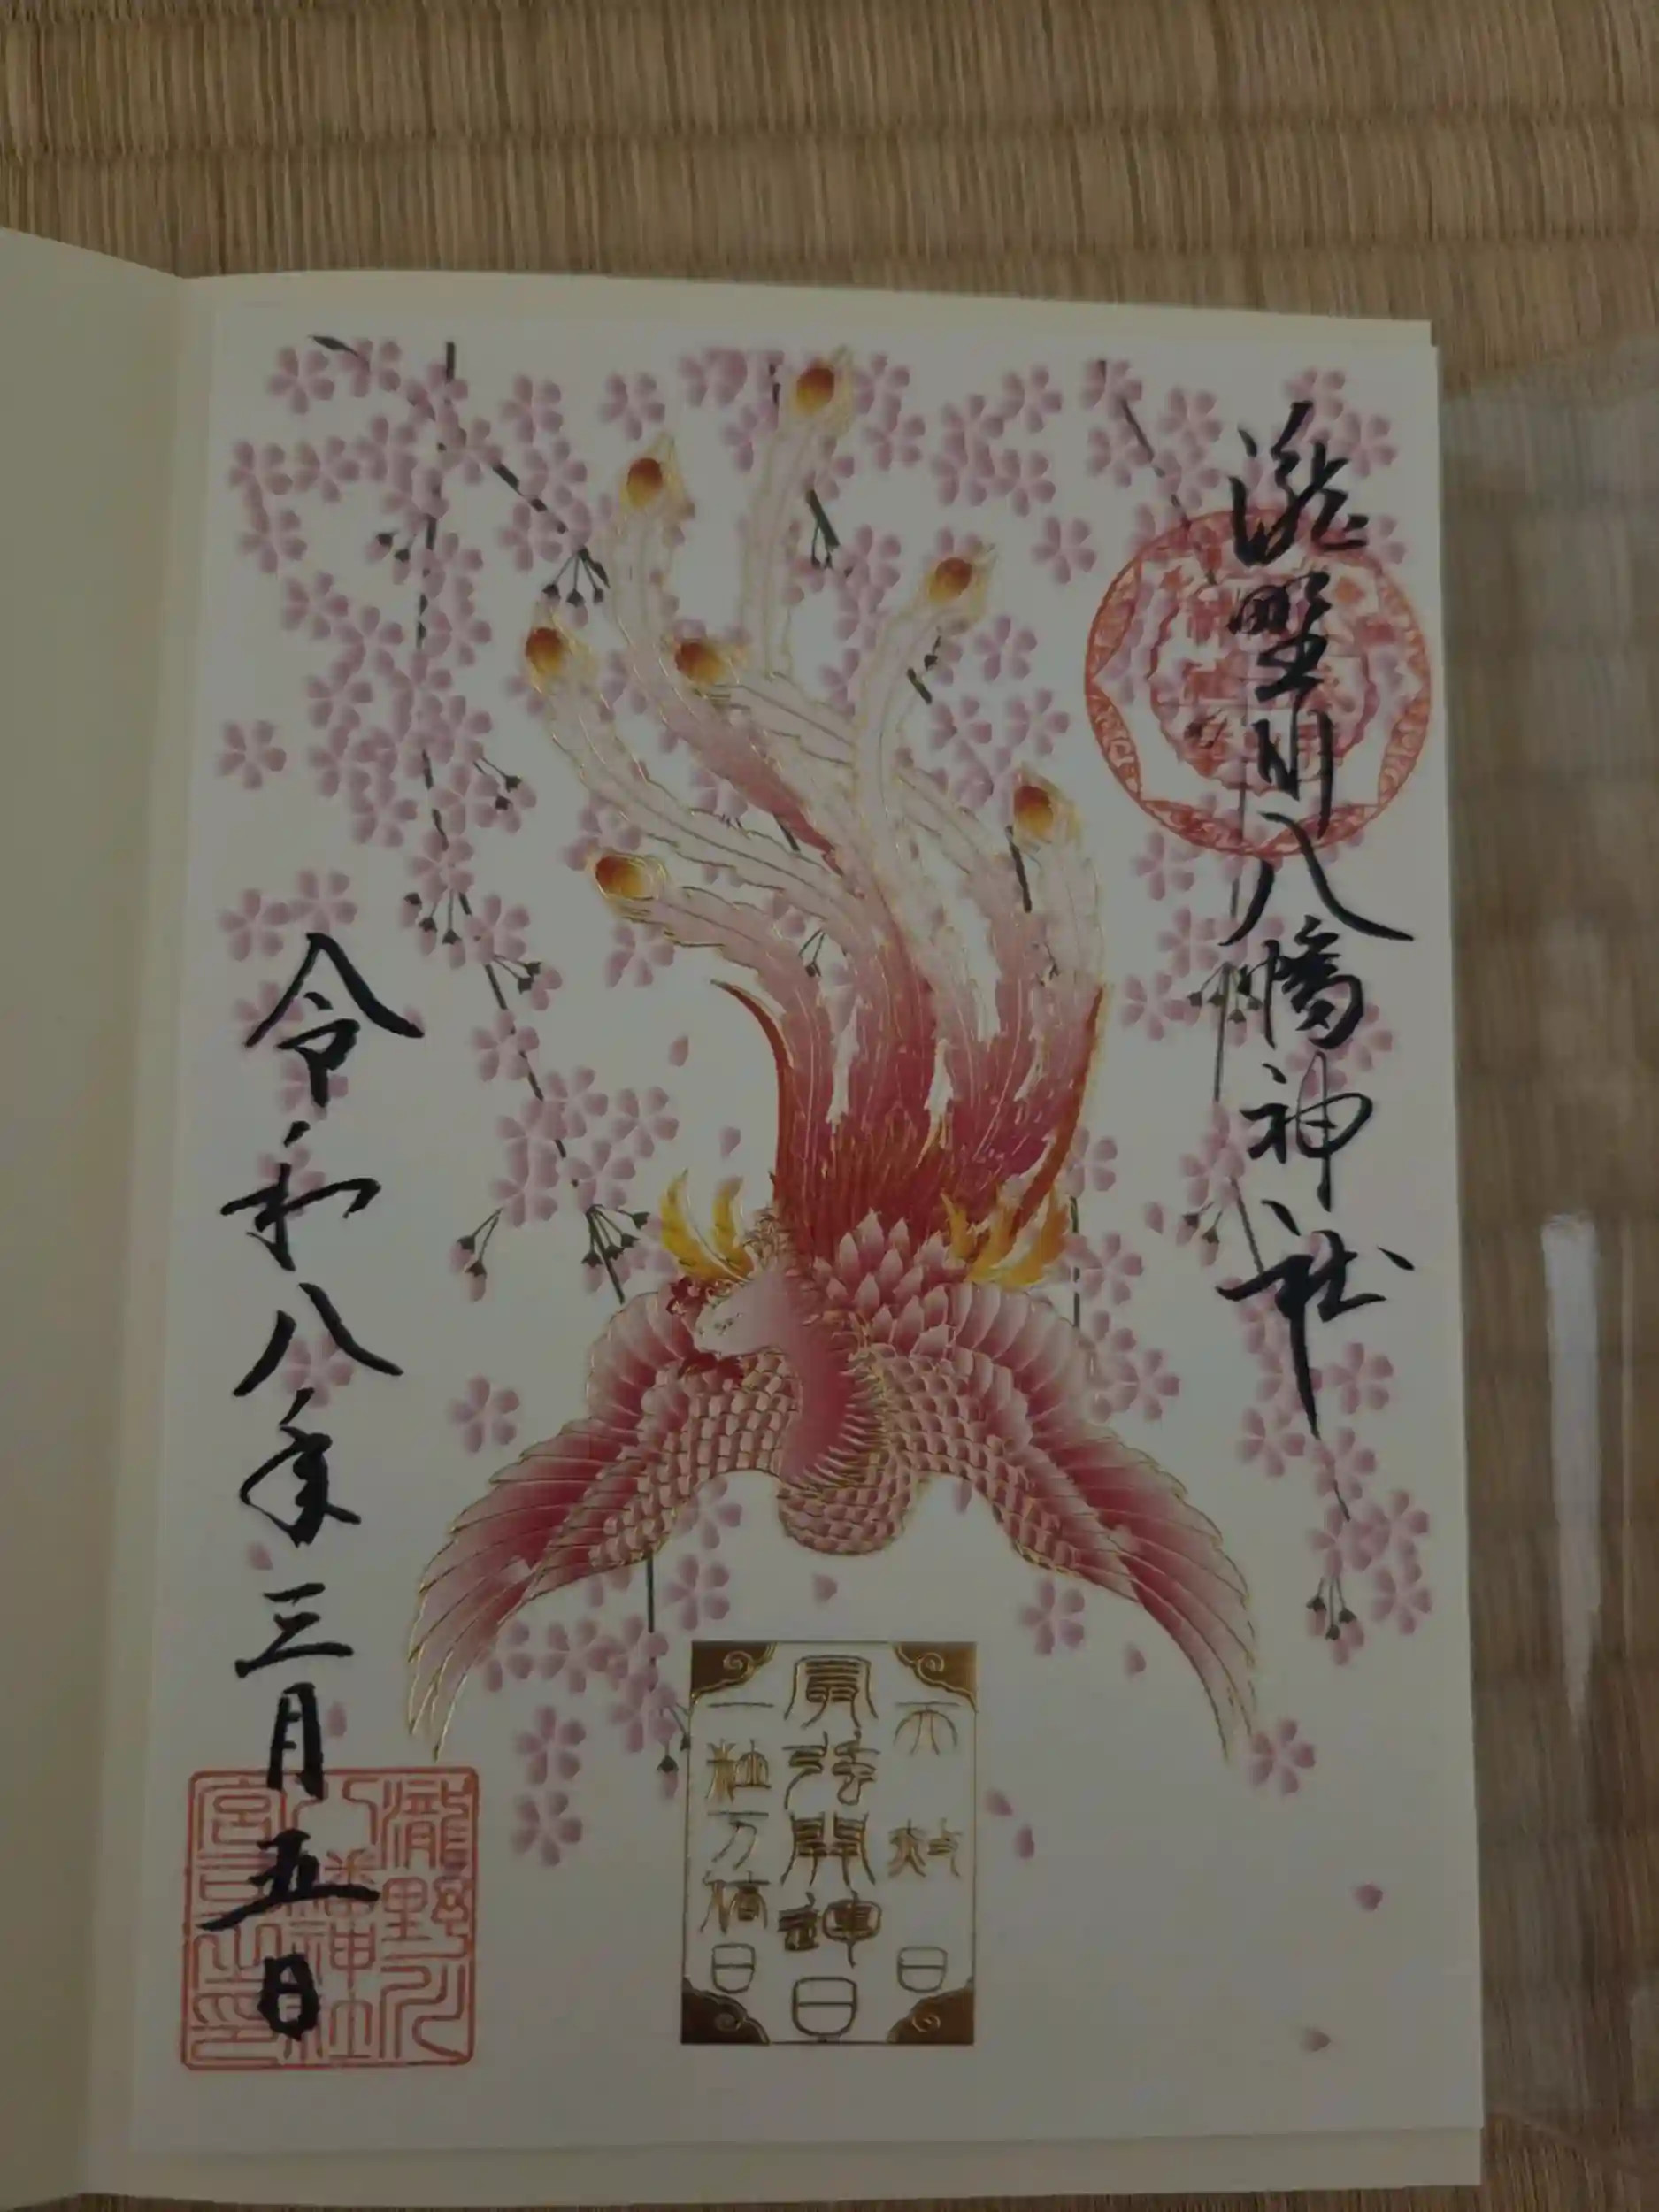 瀧野川八幡神社
天赦日
寅
開運日
一粒万倍日
令和八年三月五日
瀧野川
八幡神社
宮司之印